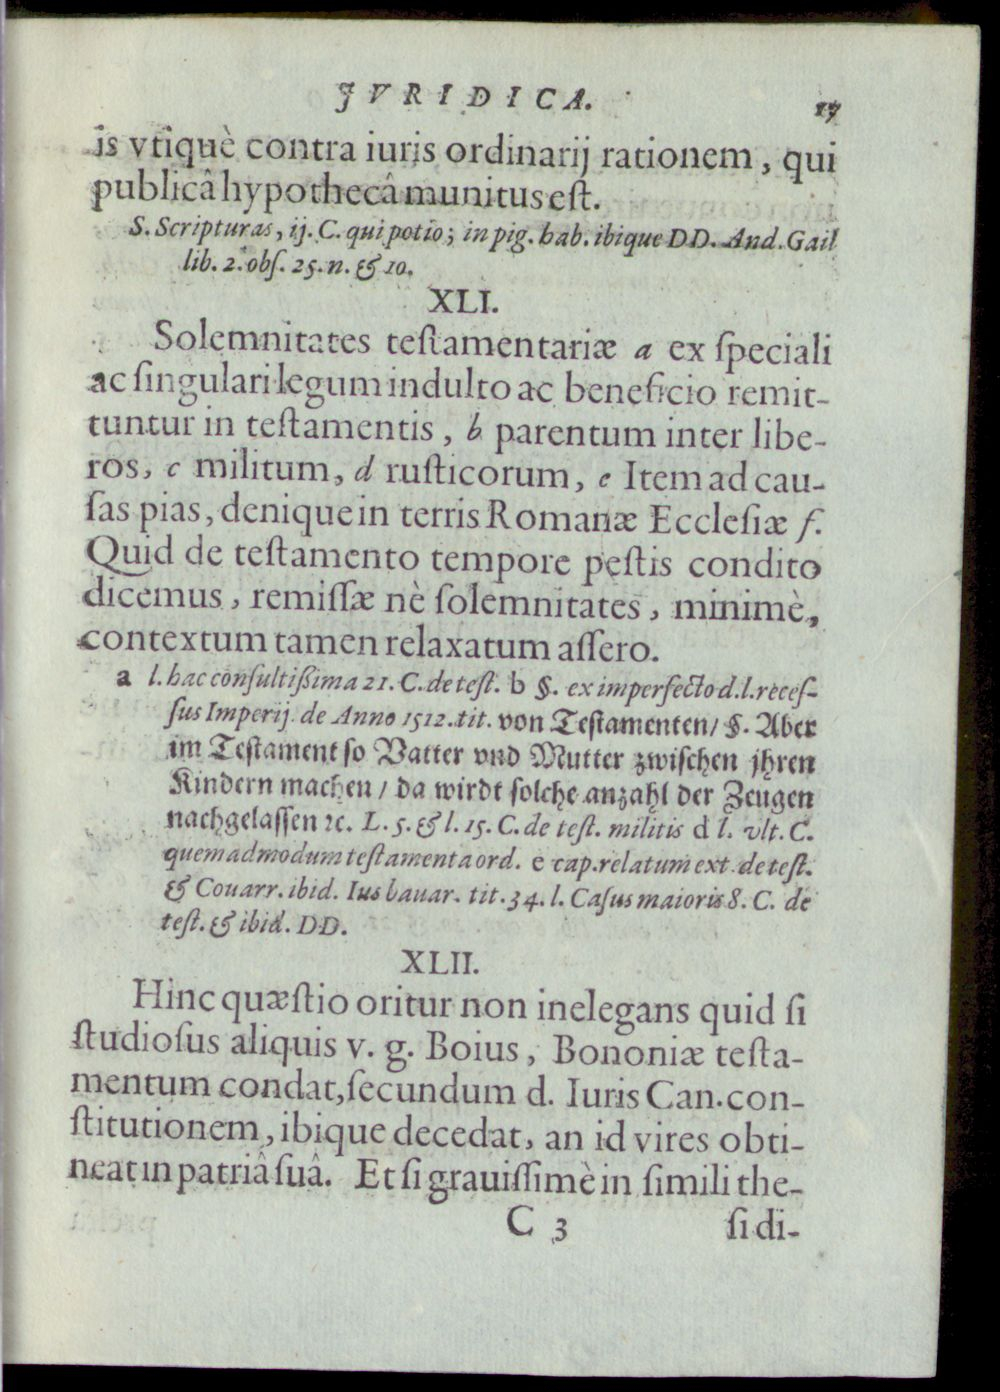 JVRIDICA. 17
is vtiquè contra iuris ordinarij rationem, qui
publicâ hypothecâ munitus est.
S. Scripturas, ij. C. qui potio; in pig. hab. ibique DD. And. Gail
lib. 2. obs. 25. n. & 10.
XLI.
Solemnitates testamentariæ a ex speciali
ac singulari legum indulto ac beneficio remit-
tuntur in testamentis, b parentum inter libe-
ros, c militum, d rusticorum, e Item ad cau-
sas pias, denique in terris Romanæ Ecclesiæ f.
Quid de testamento tempore pestis condito
dicemus, remissæ nè solemnitates, minimè,
contextum tamen relaxatum assero.
a l. hac consultißima 21. C. de test. b §. ex imperfecto d. l. reces-
sus Imperij de Anno 1512. tit. von Testamenten/ §. Aber
im Testament so Vatter vnd Mutter zwischen jhren
Kindern machen/ da wirdt solche anzahl der Zeugen
nachgelassen ꝛc. L. 5. & l. 15. C. de test. militis d l. vlt. C.
quemadmodum testamenta ord. e cap. relatum ext. de test.
& Couarr. ibid. Ius bauar. tit. 34. l. Casus maioris 8. C. de
test. & ibid. DD.
XLII.
Hinc quæstio oritur non inelegans quid si
studiosus aliquis v. g. Boius, Bononiæ testa-
mentum condat, secundum d. Iuris Can. con-
stitutionem, ibique decedat, an id vires obti-
neat in patriâ suâ. Et si grauissimè in simili the-
C 3 si di-